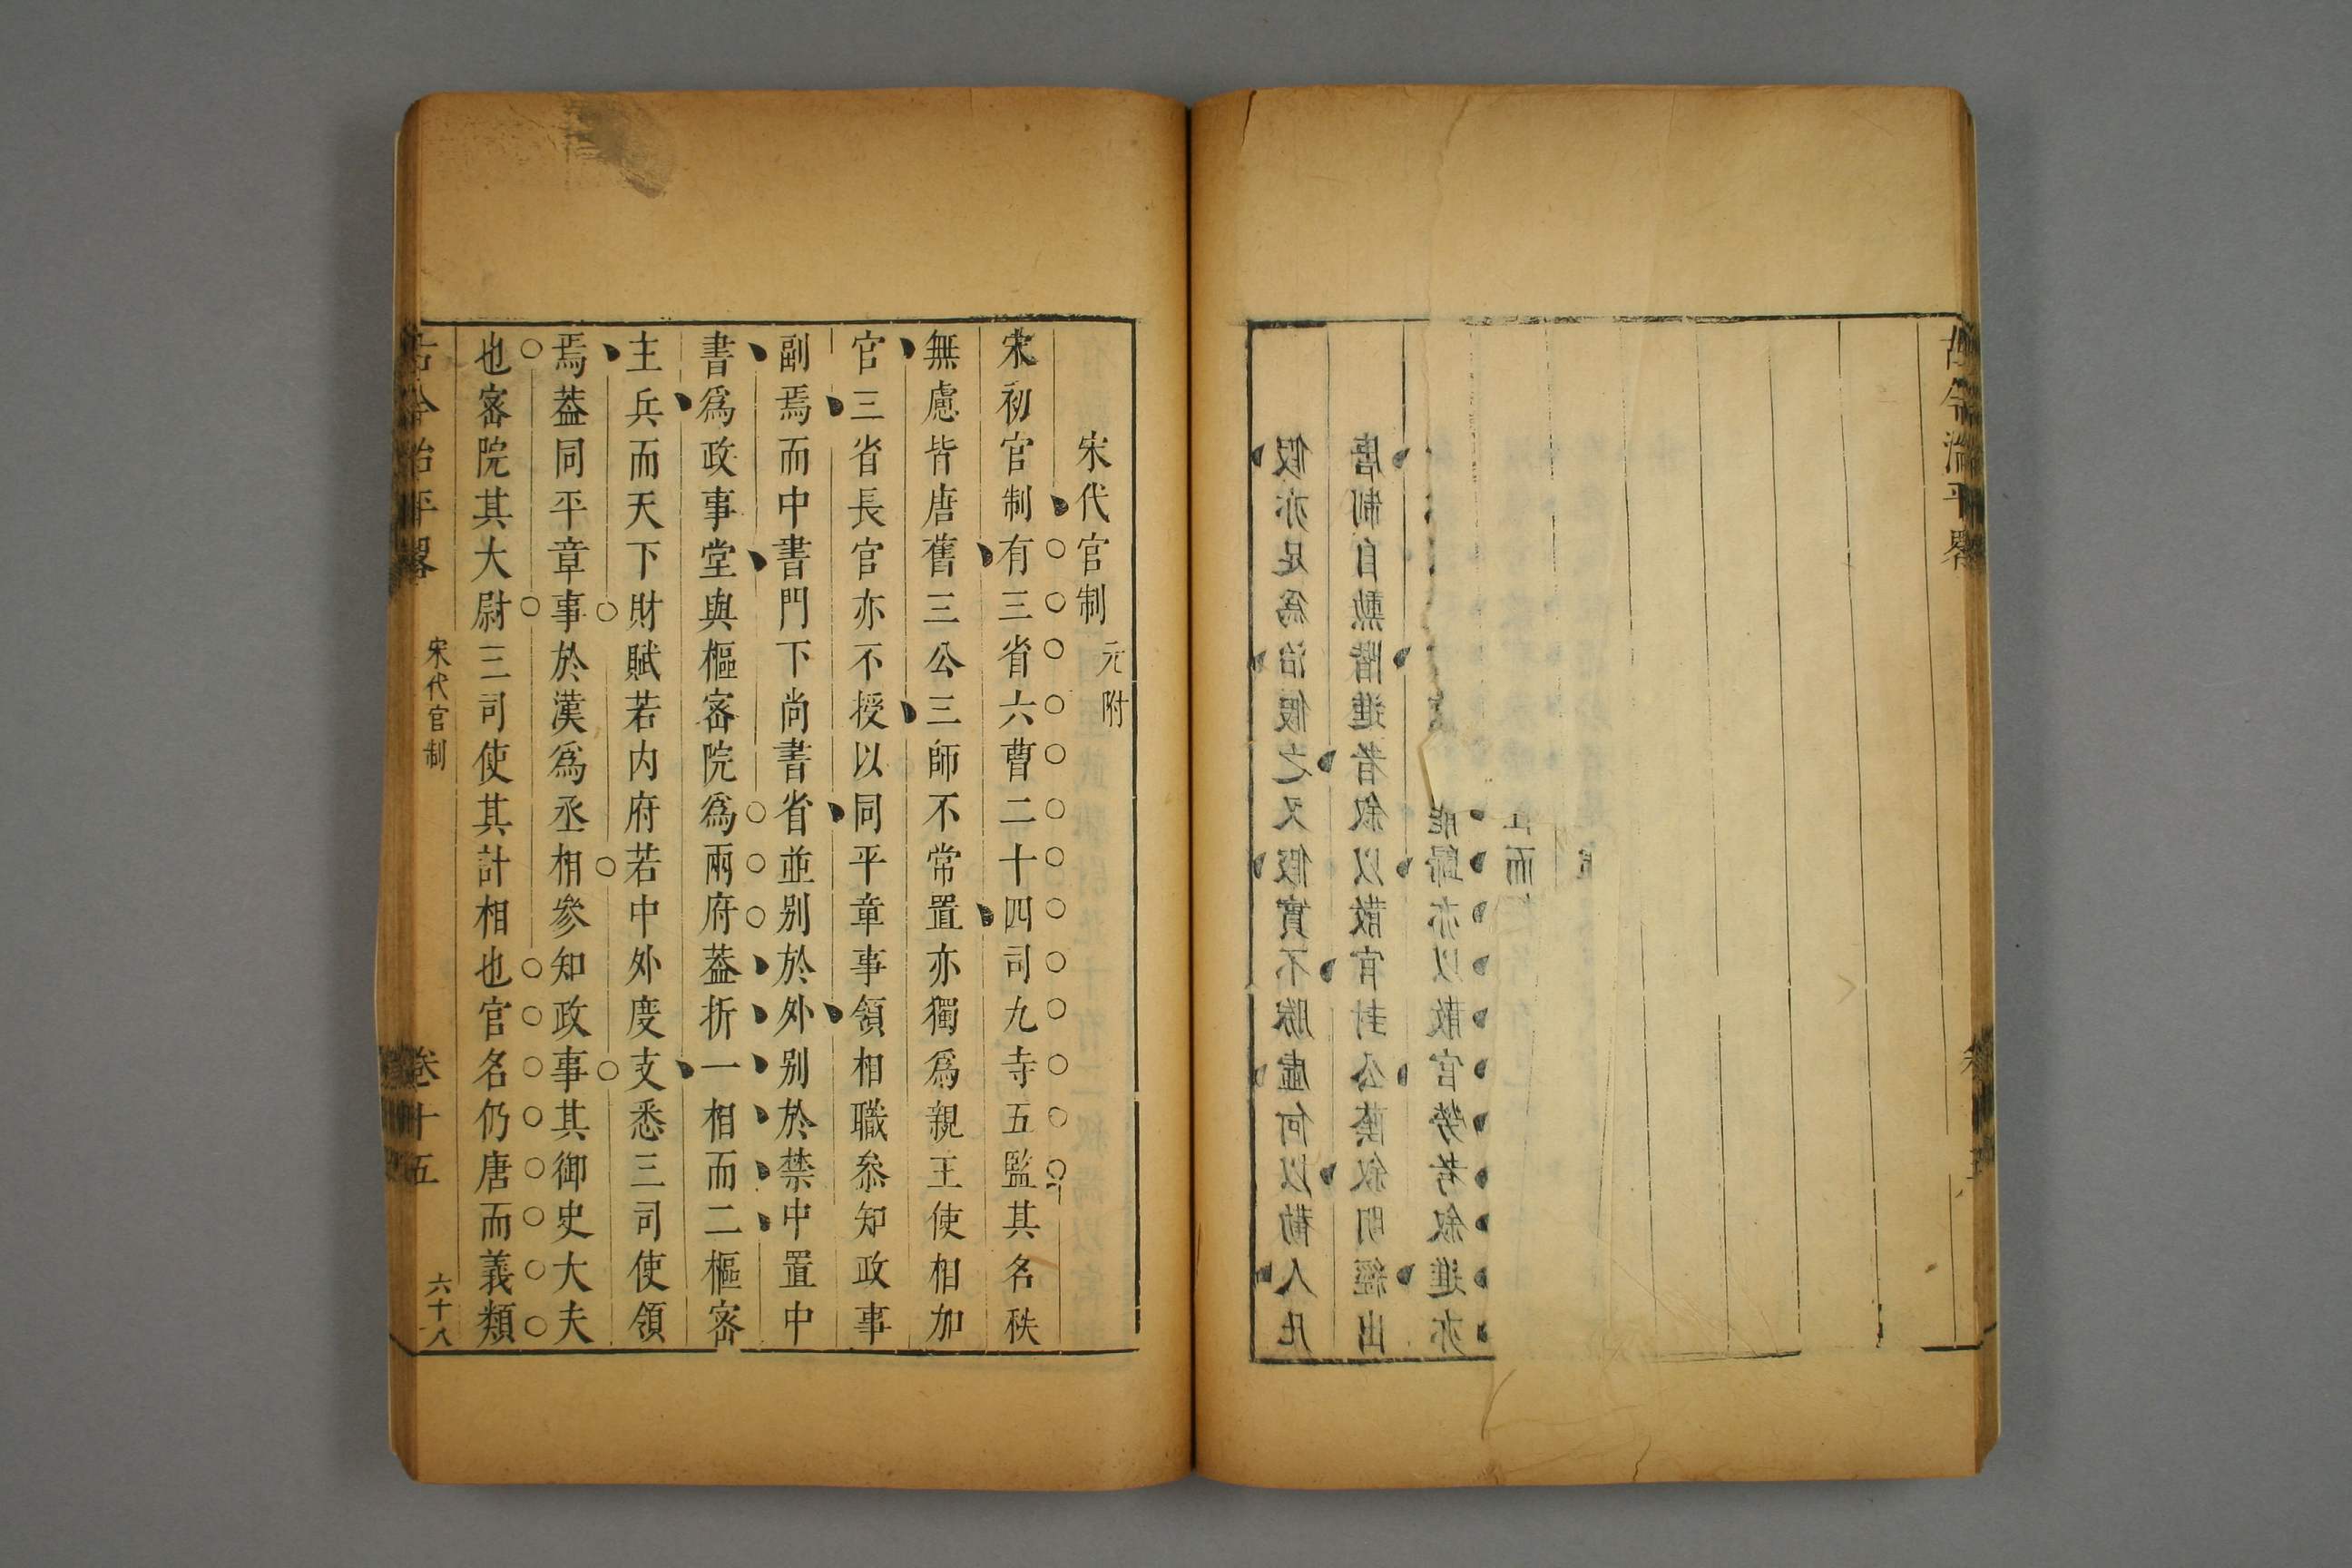 古今治平畧
假亦足為治假之又假實不勝虛何以勸人凡
唐制自勲階進者叙以散官封公蔭叙明經出
歸亦以散官勞考叙進亦
而
宋代官制 元附
宋初官制有三省六曹二十四司九寺五監其名秩
無慮皆唐舊三公三師不常置亦獨爲親王使相加
官三省長官亦不授以同平章事領相職叅知政事
副焉而中書門下尚書省並别於外别於禁中置中
書爲政事堂與樞密院爲兩府葢折一相而二樞密
主兵而天下財賦若内府若中外度支悉三司使領
焉葢同平章事於漢爲丞相參知政事其御史大夫
也密院其大尉三司使其計相也官名仍唐而義類
古今治平畧 宋代官制 卷十五 六十八